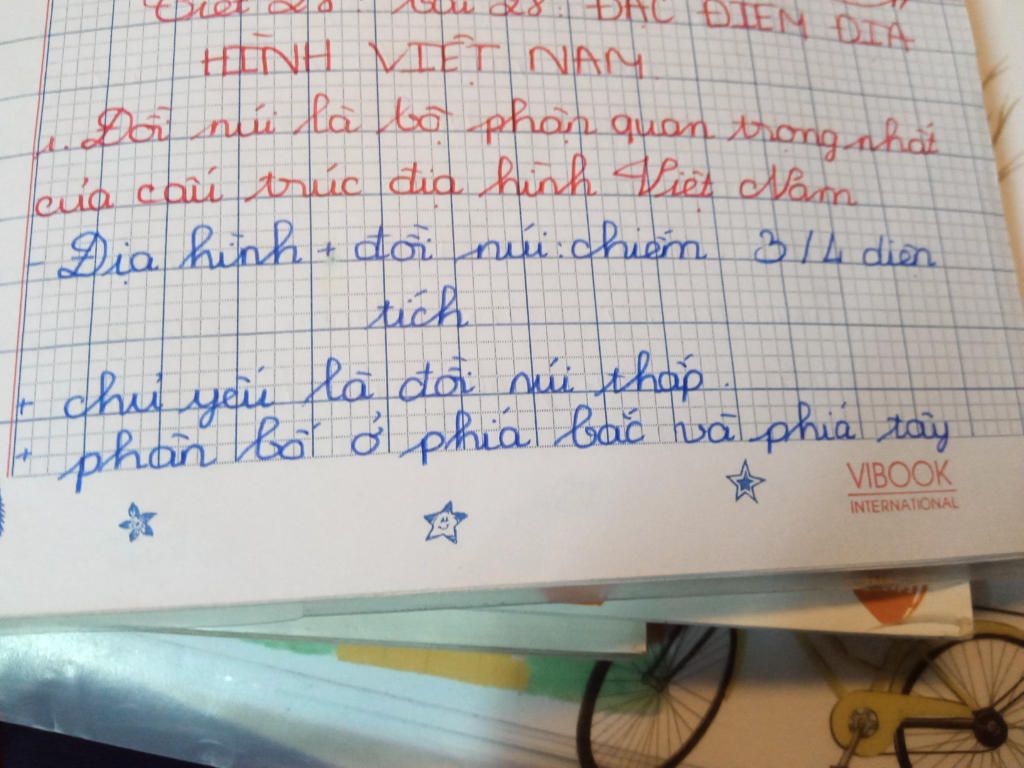 Tiết 28: Bài 28: ĐẶC ĐIỂM ĐỊA
HÌNH VIỆT NAM
1. Đồi núi là bộ phận quan trọng nhất
của cấu trúc địa hình Việt Nam
- Địa hình + đồi núi: chiếm 3/4 diện
tích
+ chủ yếu là đồi núi thấp.
+ phân bố ở phía bắc và phía tây
VIBOOK
INTERNATIONAL